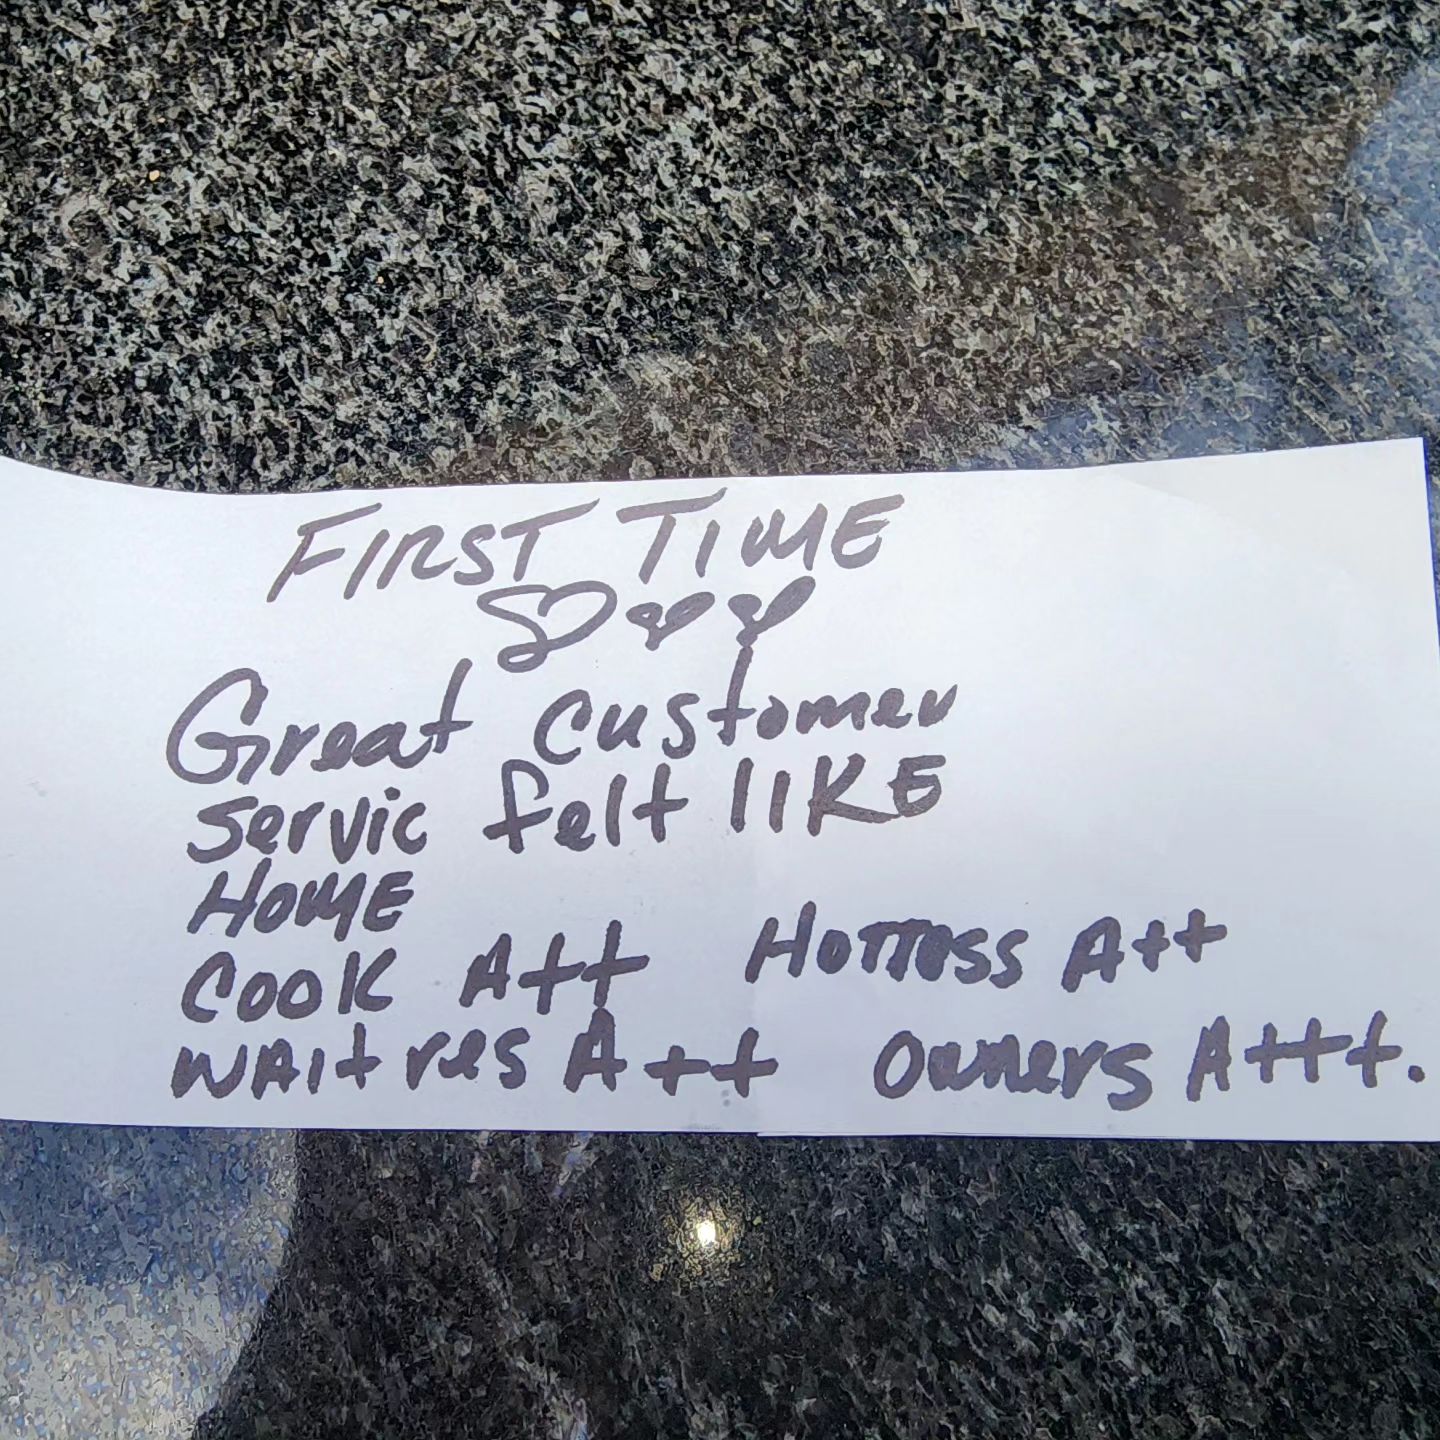 FIRST TIME
Great customer
servic felt lIKE
HOME
Cook A++ HoTTess A++
WAItres A++ Owners A+++.